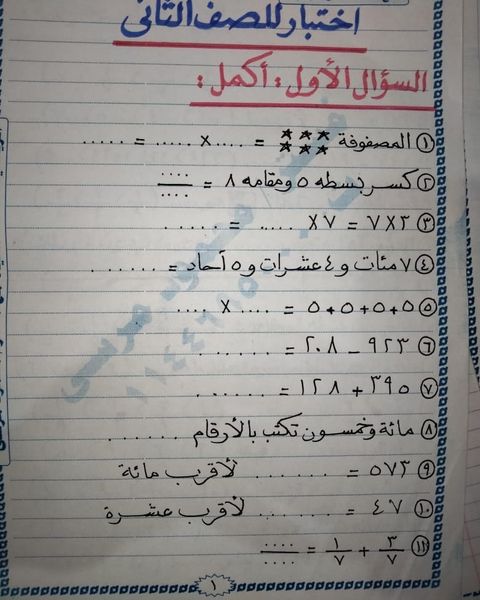 اختبار للصف الثانى
السؤال الأول : أكمل :
① المصفوفة ★★★★★★ = ..... × ..... = .....
② كسر بسطه ٥ ومقامه ٨ = ..../....
③ ٢ × ٧ = ٧ × .... = ......
④ ٧ مئات و ٤ عشرات و ٥ آحاد = .......
⑤ ٥ + ٥ + ٥ + ٥ = .... × ....
⑥ ٩٢٣ – ٢٠٨ = ........
⑦ ٣٩٥ + ١٢٨ = ........
⑧ مائة وخمسون تكتب بالأرقام .......
⑨ ٥٧٣ = ........ لأقرب مائة
⑩ ٤٧ = ........ لأقرب عشرة
⑪ ٣/٧ + ١/٧ = ..../....
١